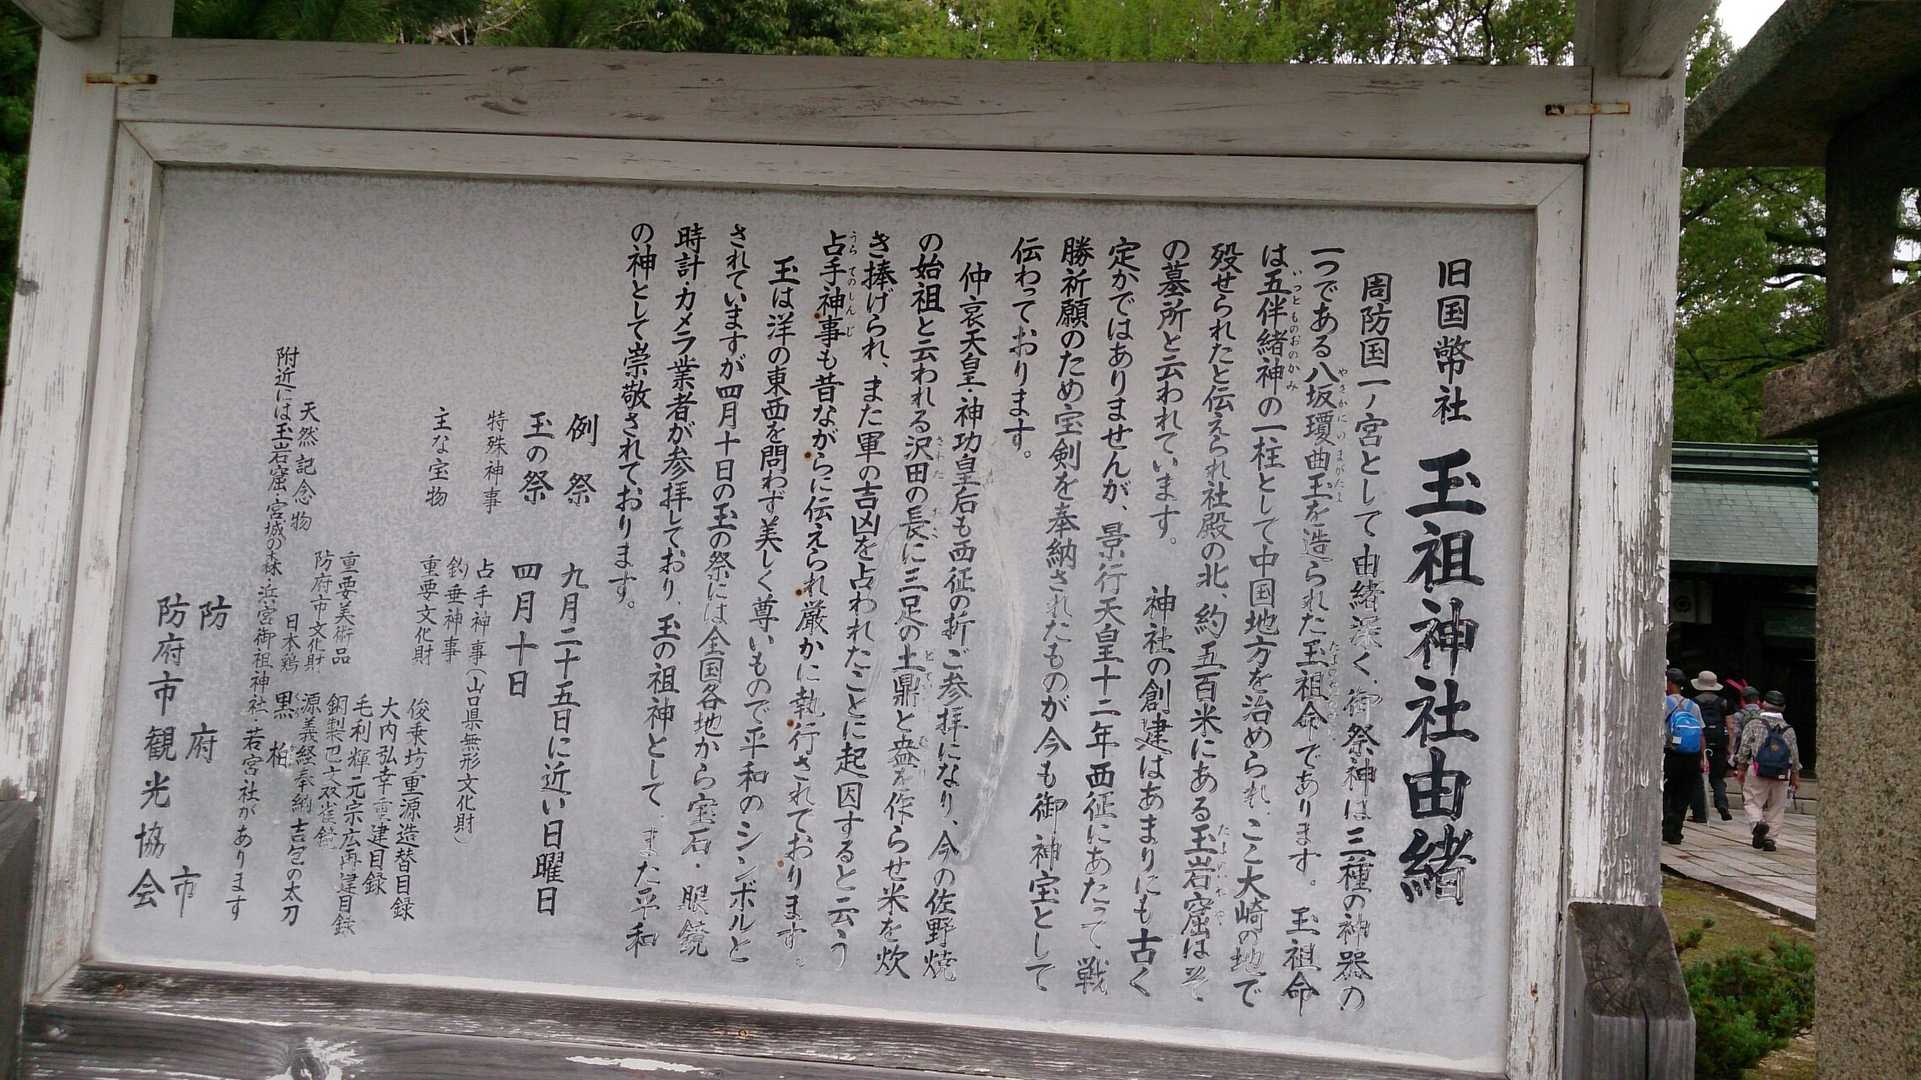 旧国幣社 玉祖神社由緒
周防国一ノ宮として由緒深く、御祭神は三種の神器の
一つである八坂瓊曲玉を造られた玉祖命であります。玉祖命
は五伴緒神の一柱として中国地方を治められ、ここ大崎の地で
歿せられたと伝えられ社殿の北、約五百米にある玉岩窟はそ
の墓所と云われています。 神社の創建はあまりにも古く
定かではありませんが、景行天皇十二年西征にあたって戦
勝祈願のため宝剣を奉納されたものが今も御神宝として
伝わっております。
仲哀天皇・神功皇后も西征の折ご参拝になり、今の佐野焼
の始祖と云われる沢田の長に三足の土鼎と盎を作らせ米を炊
き捧げられ、また軍の吉凶を占われたことに起因すると云う
占手神事も昔ながらに伝えられ厳かに執行されております。
玉は洋の東西を問わず美しく尊いもので平和のシンボルと
されていますが四月十日の玉の祭には全国各地から宝石・眼鏡
時計・カメラ業者が参拝しており、玉の祖神として、また平和
の神として崇敬されております。
例祭 九月二十五日に近い日曜日
玉の祭 四月十日
特殊神事 占手神事(山口県無形文化財)
釣垂神事
主な宝物 重要文化財 俊乗坊重源造替目録
大内弘幸重建目録
毛利輝元宗広再建目録
重要美術品 銅製巴文双雀鏡
防府市文化財 源義経奉納吉包の太刀
天然記念物 日本鶏 黒柏
附近には玉岩窟・宮城の森・浜宮御祖神社・若宮社があります
防府市
防府市観光協会